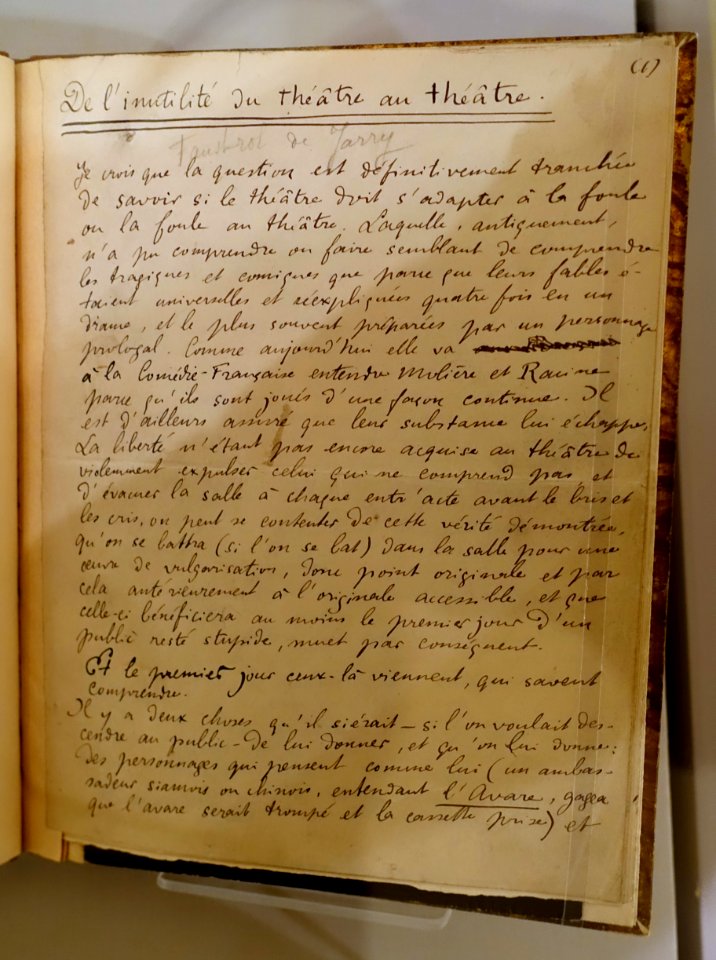 (1)
De l'inutilité du théâtre au théâtre.
de Jarry
Je crois que la question est définitivement tranchée
de savoir si le théâtre doit s'adapter à la foule
ou la foule au théâtre. Laquelle, antiquement,
n'a pu comprendre ou faire semblant de comprendre
les tragiques et comiques que parce que leurs fables é-
taient universelles et réexpliquées quatre fois en un
drame, et le plus souvent préparées par un personnage
prologal. Comme aujourd'hui elle va
à la Comédie-Française entendre Molière et Racine
parce qu'ils sont joués d'une façon continue. Il
est d'ailleurs assuré que leur substance lui échappe.
La liberté n'étant pas encore acquise au théâtre de
violemment expulser celui qui ne comprend pas et
d'évacuer la salle à chaque entr'acte avant le bris et
les cris, on peut se contenter de cette vérité démontrée,
qu'on se battra (si l'on se bat) dans la salle pour une
œuvre de vulgarisation, donc point originale et par
cela antérieurement à l'originale accessible, et que
celle-ci bénéficiera au moins le premier jour d'un
public resté stupide, muet par conséquent.
Et le premier jour ceux-là viennent, qui savent
comprendre.
Il y a deux choses qu'il siérait — si l'on voulait des-
cendre au public — de lui donner, et qu'on lui donne:
des personnages qui pensent comme lui (un ambas-
sadeur siamois ou chinois, entendant l'Avare, gagea
que l'avare serait trompé et la cassette prise) et